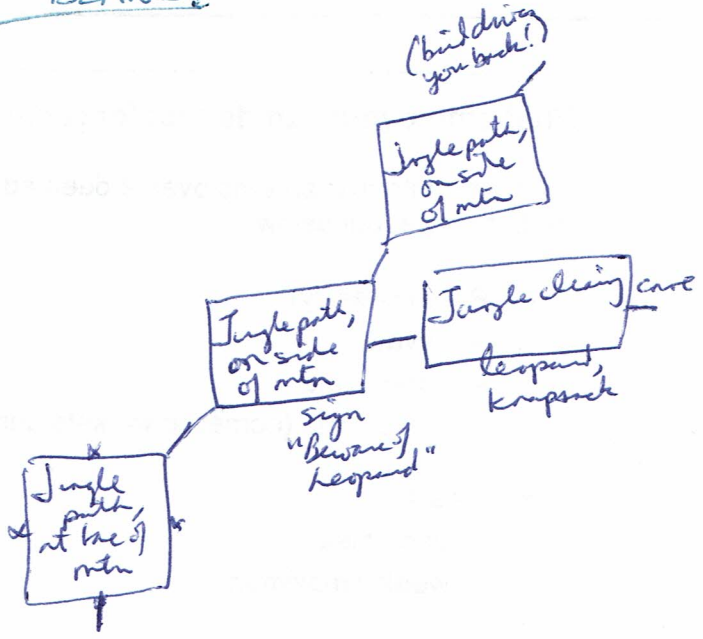 (bird driving
you back!)
Jungle path,
on side
of mtn
Jungle path,
on side
of mtn
Jungle clearing
cave
leopard,
knapsack
sign
"Beware of
Leopard"
Jungle
path,
at base of
mtn